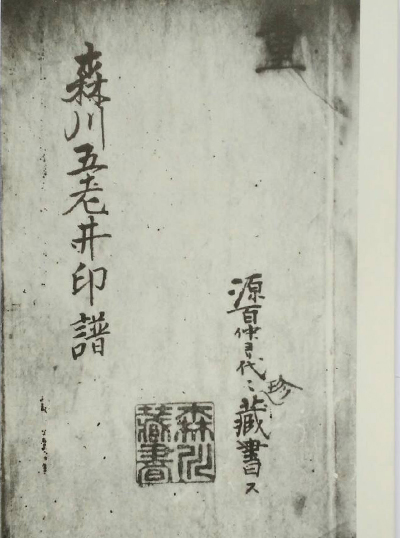 源百仲ヨリ代々珍藏書ス
森川
藏書
森川五老井印譜